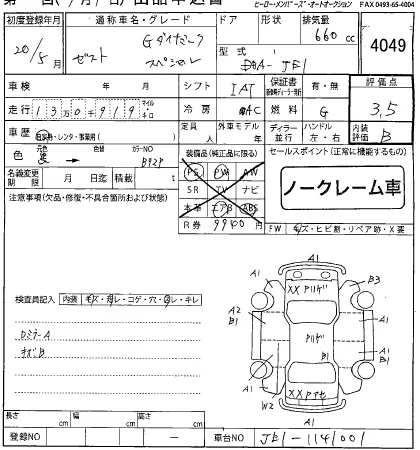 ヒーロー・メンバーズ・オートオークション FAX 0493-65-4004
初度登録年月 通称車名・グレード ドア 形状 排気量
20/5月 ゼスト Gダイナミック スペシャル 660 cc
型式 DBA-JE1
4049
車検 年 月 シフト IAT 保証書 有・無 評価点
走行 13万0千919 マイル キロ 冷房 AC 燃料 G 3.5
車歴 自家用・レンタ・事業用( ) 定員 人 外車モデル 年 ディーラー 並行 ハンドル 左・右 内装評価 B
色 元色 黒 色替 カラーNO B92P
装備品(純正品に限る) セールスポイント(正常に機能するもの)
名義変更期限 月 日迄 積載 t
PS PW AW
SR TV ナビ
本革 エアB ABS
R券 9940円
ノークレーム車
注意事項(欠品・修復・不具合箇所および状態)
FW キズ・ヒビ割・リペア跡・X要
検査員記入 内装 キズ・汚レ・コゲ・穴・凹レ・キレ
DミラーA
キズB
A1
A1
B3
XX アリバゲ
A2
B1
A1
A1
B1
B1
A1
W2
A1
A1
長さ cm 幅 cm 高さ cm
登録NO ー 車台NO JE1-1141001